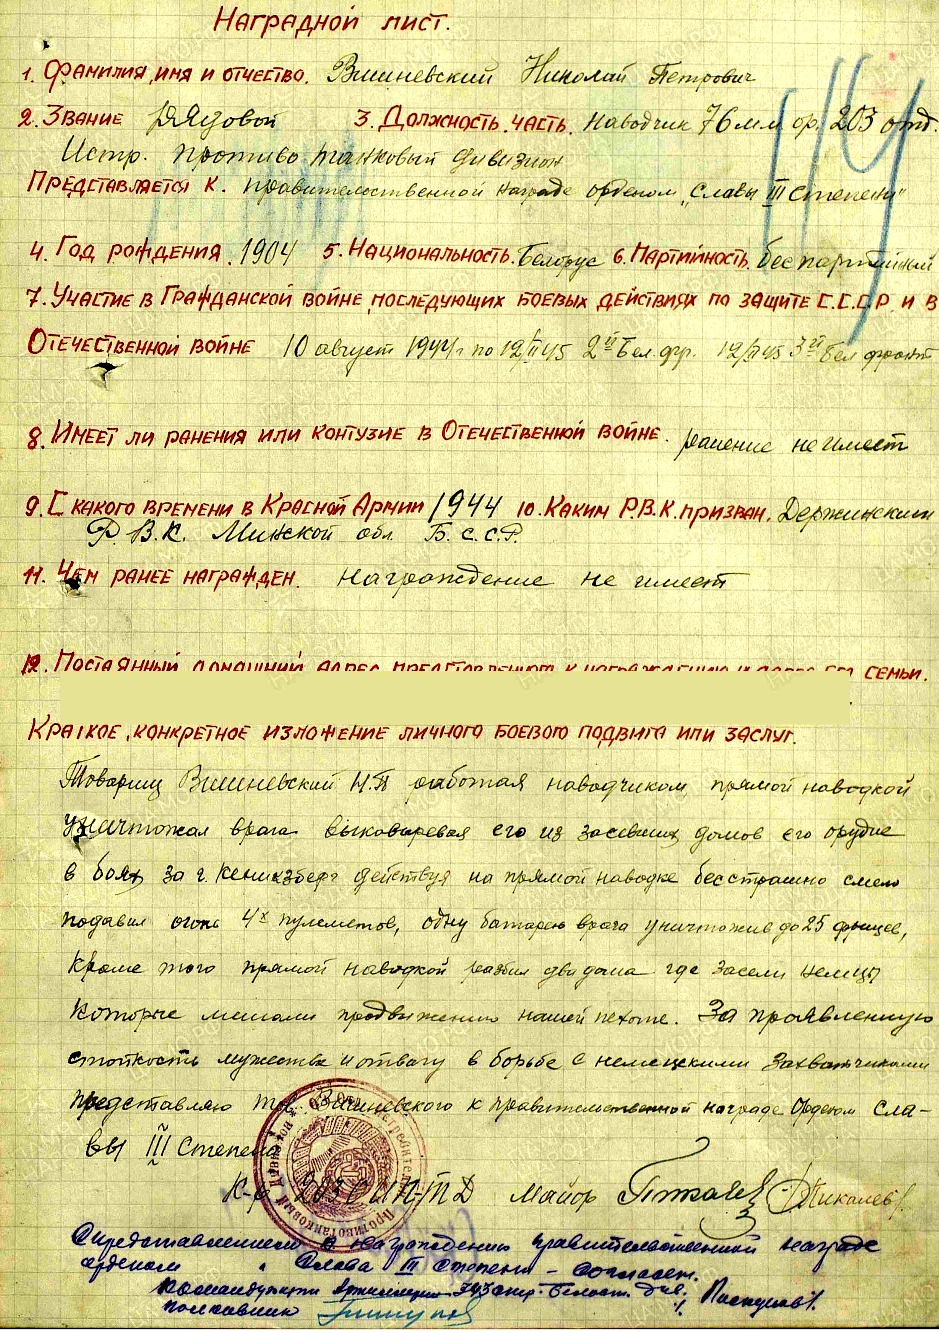 Наградной лист.
1. Фамилия, имя и отчество. Вишневский Николай Петрович
2. Звание рядовой 3. Должность, часть. Наводчик 76 мм ор. 203 отд.
Истр. противо танковый дивизион
Представляется к. правительственной награде орденом „Славы III степени"
119
4. Год рождения. 1904 5. Национальность. Белорус 6. Партийность. беспартийный
7. Участие в Гражданской войне, последующих боевых действиях по защите С.С.С.Р. и в
Отечественной войне 10 август 1944 г по 12/II 45 2й Бел. фр. 12/II 45 3й Бел фронт
8. Имеет ли ранения или контузие в Отечественной войне. ранение не имеет
9. С какого времени в Красной Армии 1944 10. Каким Р.В.К. призван. Держинским
Р.В.К. Минской обл Б.С.С.Р.
11. Чем ранее награжден. награждение не имеет
12. Постаянный домашний адрес представленного к награждению и адрес его семьи.
Краткое, конкретное изложение личного боевого подвига или заслуг.
Товарищ Вишневский Н.П работая наводчиком прямой наводкой
уничтожал врага выковыревая его из засевших домов его орудие
в боях за г. Кенигзберг действуя на прямой наводке бесстрашно смело
подавил огонь 4х пулеметов, одну батарею врага уничтожив до 25 фрицев,
кроме того прямой наводкой разбил два дома где засели немцы
которые мешали продвижению нашей пехоте. За проявленную
стойкость мужества и отвагу в борьбе с немецкими захватчиками
представляю тов. Вишневского к правительственной награде Орденом Сла-
вы III степени
К-р 203 ОИПТД майор
Спредставлением к награждению правительственной награде
орденом „Слава III степени – согласен.
Командующий Артиллерии
полковник